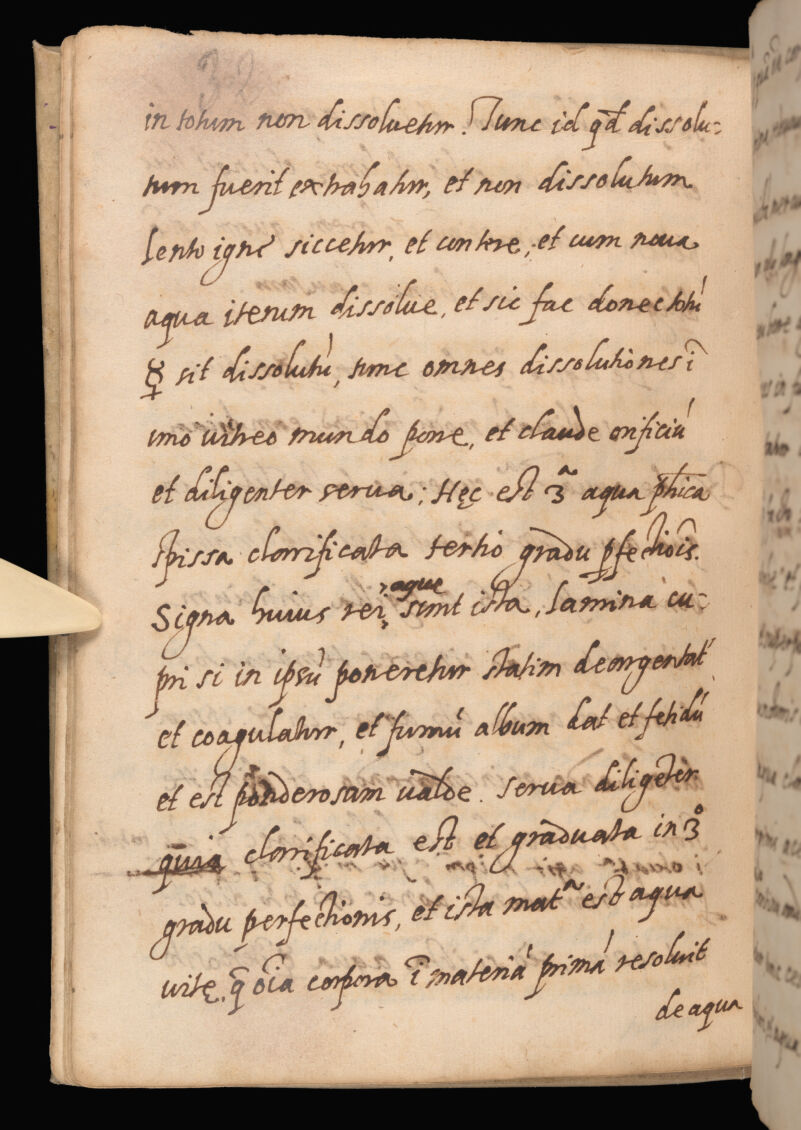 32
in totum non dissoluetur. Tunc id qd̄ dissolu=
tum fuerit extrahatur, et non dissolutum
lento igne siccetur, et contere, et cum noua
aqua iterum dissolue, et sic fac donec totū
☿ sit dissolutū, tunc omnes dissolutiones ī
uno uitreo mundo pone, et claude orificiū
et diligenter serua: Hęc est 3ᵃ aqua p̄hica
spissa clarificata tertio gradu ꝑfectiōis.
aque
Signa huius rei sunt ista, lamina cu=
pri si in ipsū poneretur statim deargentat᷑
et coagulatur, et fumū album dat et fetidū
et est ponderosam ualde. serua diligēter
quia clarificata est et graduata in 3º
gradu perfectionis, et ista matᵃ est aqua
uitę, q̄ oīa corpora ī materiā primā resoluit
de aqua